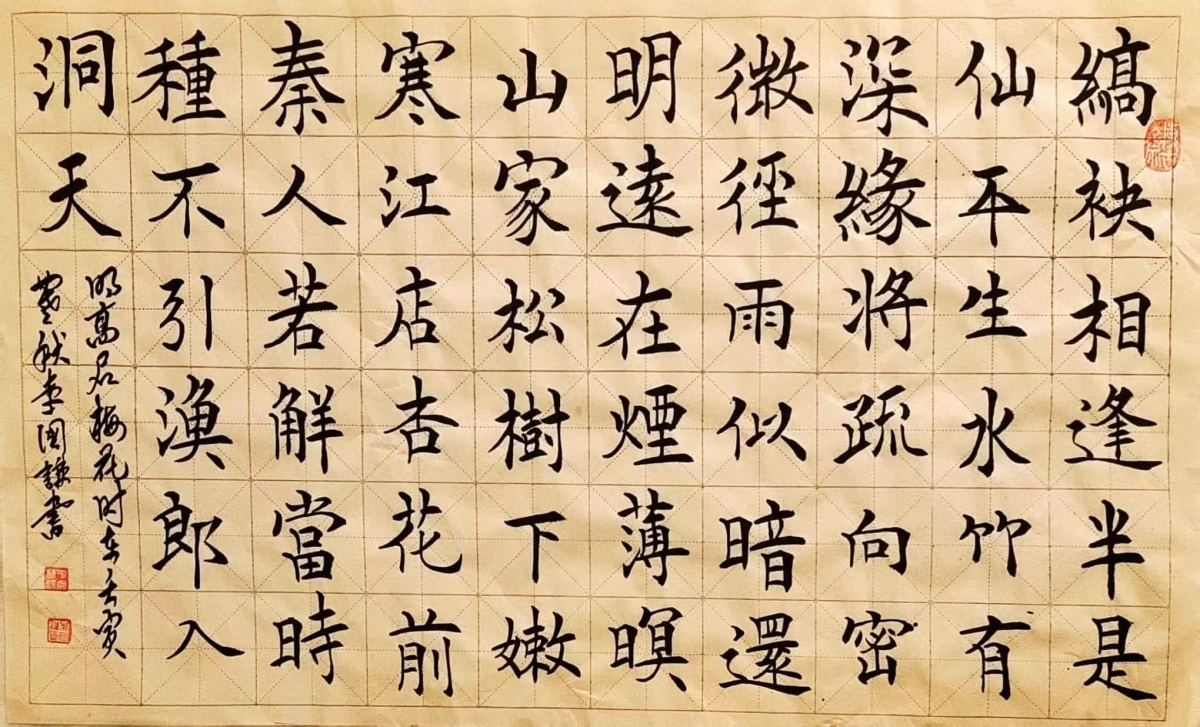 縞袂相逢半是
仙平生水竹有
深緣将疏向密
微徑雨似暗還
明遠在煙薄暝
山家松樹下嫩
寒江店杏花前
秦人若解當時
種不引漁郎入
洞天
明高启梅花时在壬寅
暮秋李国謙书